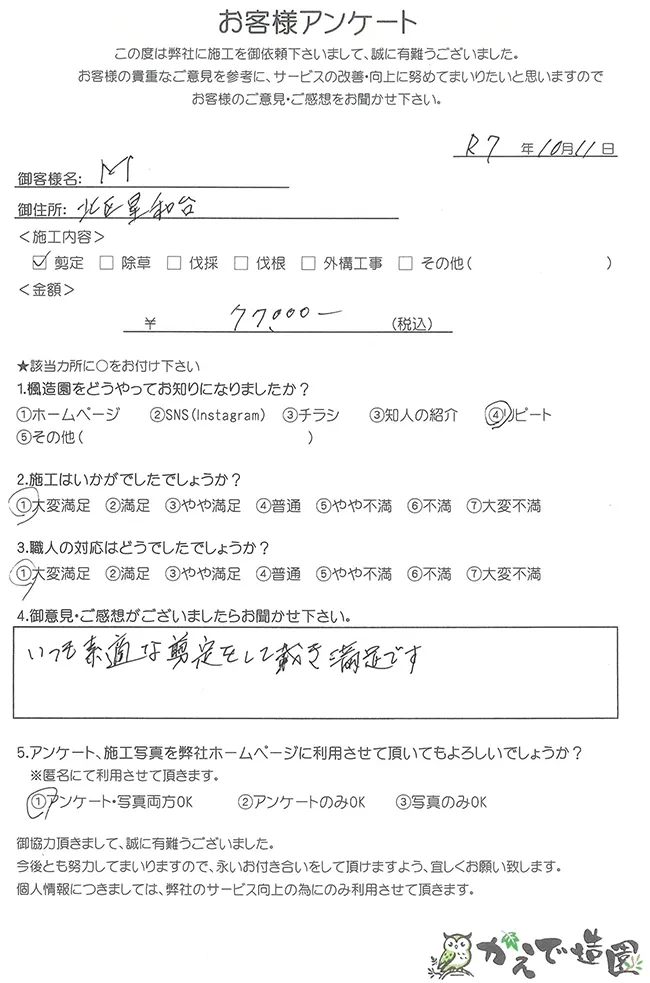 お客様アンケート
この度は弊社に施工を御依頼下さいまして、誠に有難うございました。
お客様の貴重なご意見を参考に、サービスの改善・向上に努めてまいりたいと思いますので
お客様のご意見・ご感想をお聞かせ下さい。
R7 年10月11日
御客様名: M
御住所: 北区星和台
<施工内容>
☑ 剪定 □ 除草 □ 伐採 □ 伐根 □ 外構工事 □ その他( )
<金額>
¥ 77,000- (税込)
★該当カ所に○をお付け下さい
1.楓造園をどうやってお知りになりましたか?
①ホームページ ②SNS(Instagram) ③チラシ ③知人の紹介 ④リピート
⑤その他( )
2.施工はいかがでしたでしょうか?
①大変満足 ②満足 ③やや満足 ④普通 ⑤やや不満 ⑥不満 ⑦大変不満
3.職人の対応はどうでしたでしょうか?
①大変満足 ②満足 ③やや満足 ④普通 ⑤やや不満 ⑥不満 ⑦大変不満
4.御意見・ご感想がございましたらお聞かせ下さい。
いつも素適な剪定をして戴き満足です
5.アンケート、施工写真を弊社ホームページに利用させて頂いてもよろしいでしょうか?
※匿名にて利用させて頂きます。
①アンケート・写真両方OK ②アンケートのみOK ③写真のみOK
御協力頂きまして、誠に有難うございました。
今後とも努力してまいりますので、永いお付き合いをして頂けますよう、宜しくお願い致します。
個人情報につきましては、弊社のサービス向上の為にのみ利用させて頂きます。
かえで造園